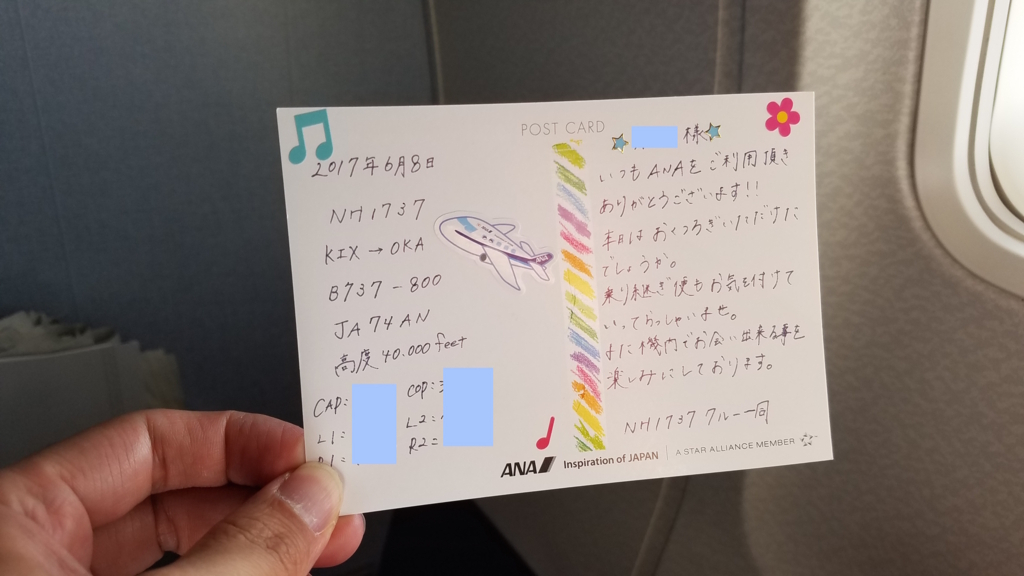 POST CARD
2017年6月8日
NH1737
KIX → OKA
B737-800
JA74AN
高度40.000feet
CAP:
COP:
L1=
L2=
R1=
R2=
様
いつもANAをご利用頂き
ありがとうございます!!
本日はおくつろぎいただけた
でしょうか。
乗り継ぎ便もお気を付けて
いってらっしゃいませ。
また機内でお会い出来る事を
楽しみにしております。
NH1737 クルー一同
ANA Inspiration of JAPAN A STAR ALLIANCE MEMBER